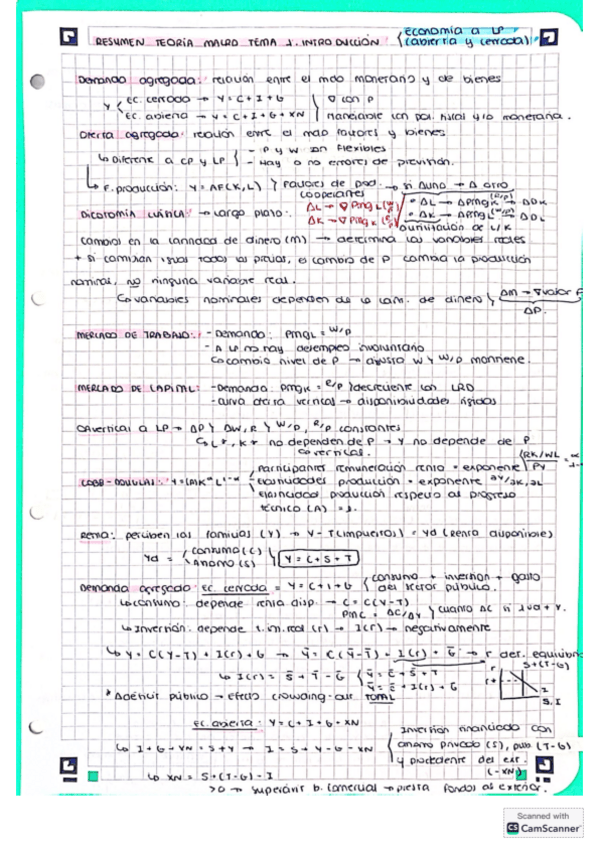 RESUMEN TEORÍA MACRO TEMA 1. INTRODUCCIÓN { economía a LP (abierta y cerrada)
Demanda agregada: relación entre el mdo monetario y de bienes
Y { Ec. cerrada → Y = C + I + G } ∇ con P
Ec. abierta → Y = C + I + G + XN } manejable con pol. fiscal y/o monetaria.
Oferta agregada: relación entre el mdo factores y bienes
↳ Diferente a CP y LP { - P y W son flexibles
- Hay o no errores de previsión.
↳ F. producción: Y = AF(K,L) } Factores de prod. cooperantes → si Δuno → Δ otro
ΔL → ∇ PmgL (W/P)
ΔK → ∇ PmgK (R/P)
* ΔL → ΔPmgK (R/P) → ΔDK
* ΔK → ΔPmgL (W/P) → ΔDL
Dicotomía clásica: → largo plazo:
Cambios en la cantidad de dinero (M) → determina las variables reales
+ si cambian igual todos los precios, el cambio de P cambia la producción
nominal, no ninguna variable real.
↳ variables nominales dependen de la cant. de dinero { ΔM → ∇valor
ΔP.
MERCADO DE TRABAJO: - Demanda: PmgL = W/P
- A LP no hay desempleo involuntario
↳ cambio nivel de P → ajusta W y W/P mantiene.
MERCADO DE CAPITAL: - Demanda: PmgK = R/P } decreciente con LRD
- curva oferta vertical → disponibilidades rígidas
OA vertical a LP → ΔP y ΔW, R y W/P, R/P constantes
↳ L*, K* no dependen de P → Y no depende de P
↳ vertical.
COBB-DOUGLAS: Y = (A)K^α L^1-α { participantes remuneración renta = exponente
elasticidades producción = exponente
elasticidad producción respecto al progreso
técnico (A) = 1.
Renta: perciben las familias (Y) → Y - T (impuestos) = Yd (Renta disponible)
Yd = { consumo (C)
ahorro (S) } Y = C + S + T
Demanda agregada: Ec. cerrada = Y = C + I + G { consumo + inversión + gasto
del sector público.
↳ consumo: depende renta disp. → C = C(Y-T)
PMC = ΔC/ΔY } cuanto ΔC si 1ud + Y.
↳ Inversión: depende t. int. real (r) → I(r) → negativamente
↳ Y = C(Y-T) + I(r) + G → Ȳ = C(Ȳ-T̄) + I(r) + Ḡ → r der. equilibrio
↳ I(r) = S̄ + T̄ - Ḡ { Ȳ = C̄ + S̄ + T̄
Ȳ = C̄ + I(r) + Ḡ
r S+(T-G)
r*
I
S, I
* Δdéficit público → efecto crowding-out TOTAL
Ec. abierta: Y = C + I + G + XN
↳ I + G + XN = S + T → I = S + T - G - XN { Inversión financiada con
ahorro privado (S), pub (T-G)
y procedente del ext. (-XN)
↳ XN = S + (T-G) - I
>0 → superávit b. comercial → presta fondos al exterior.
Scanned with
CS CamScanner